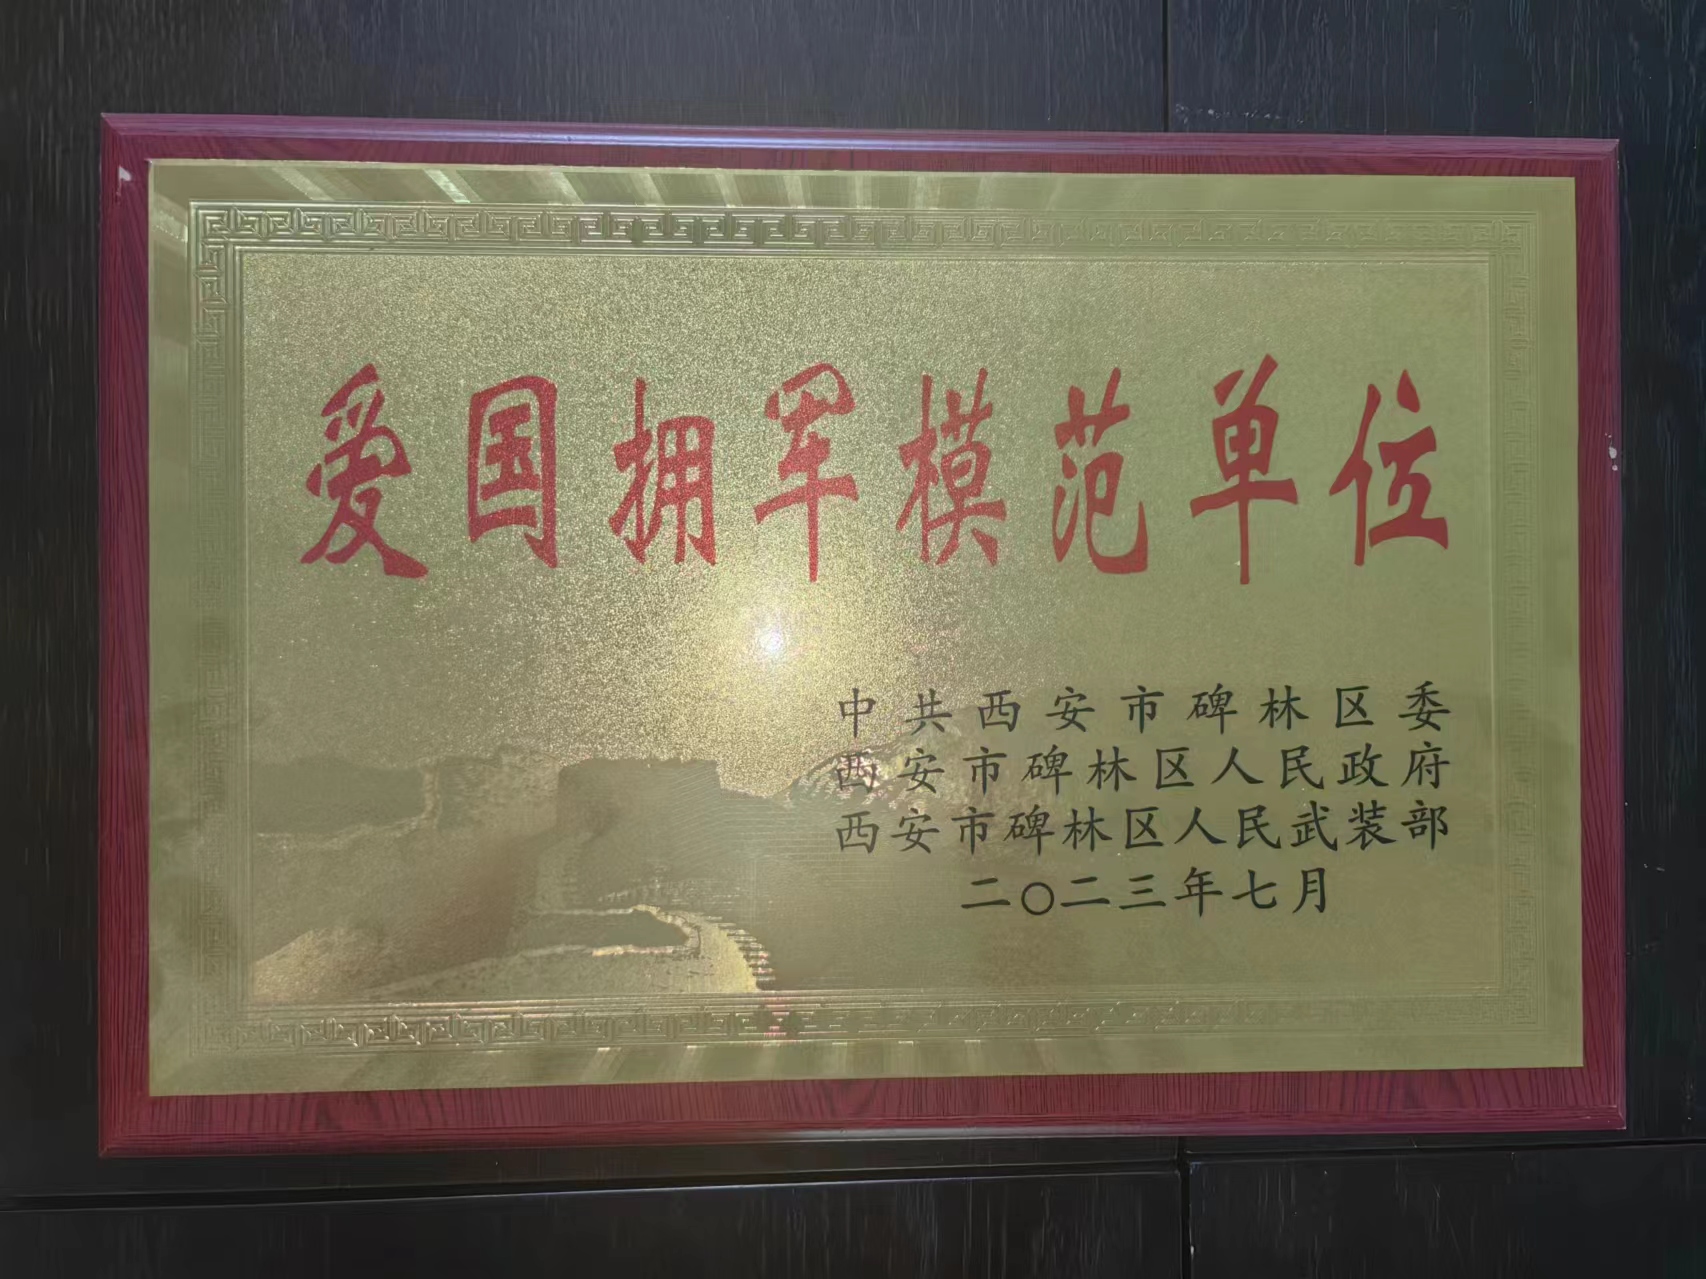 爱国拥军模范单位
中共西安市碑林区委
西安市碑林区人民政府
西安市碑林区人民武装部
二〇二三年七月